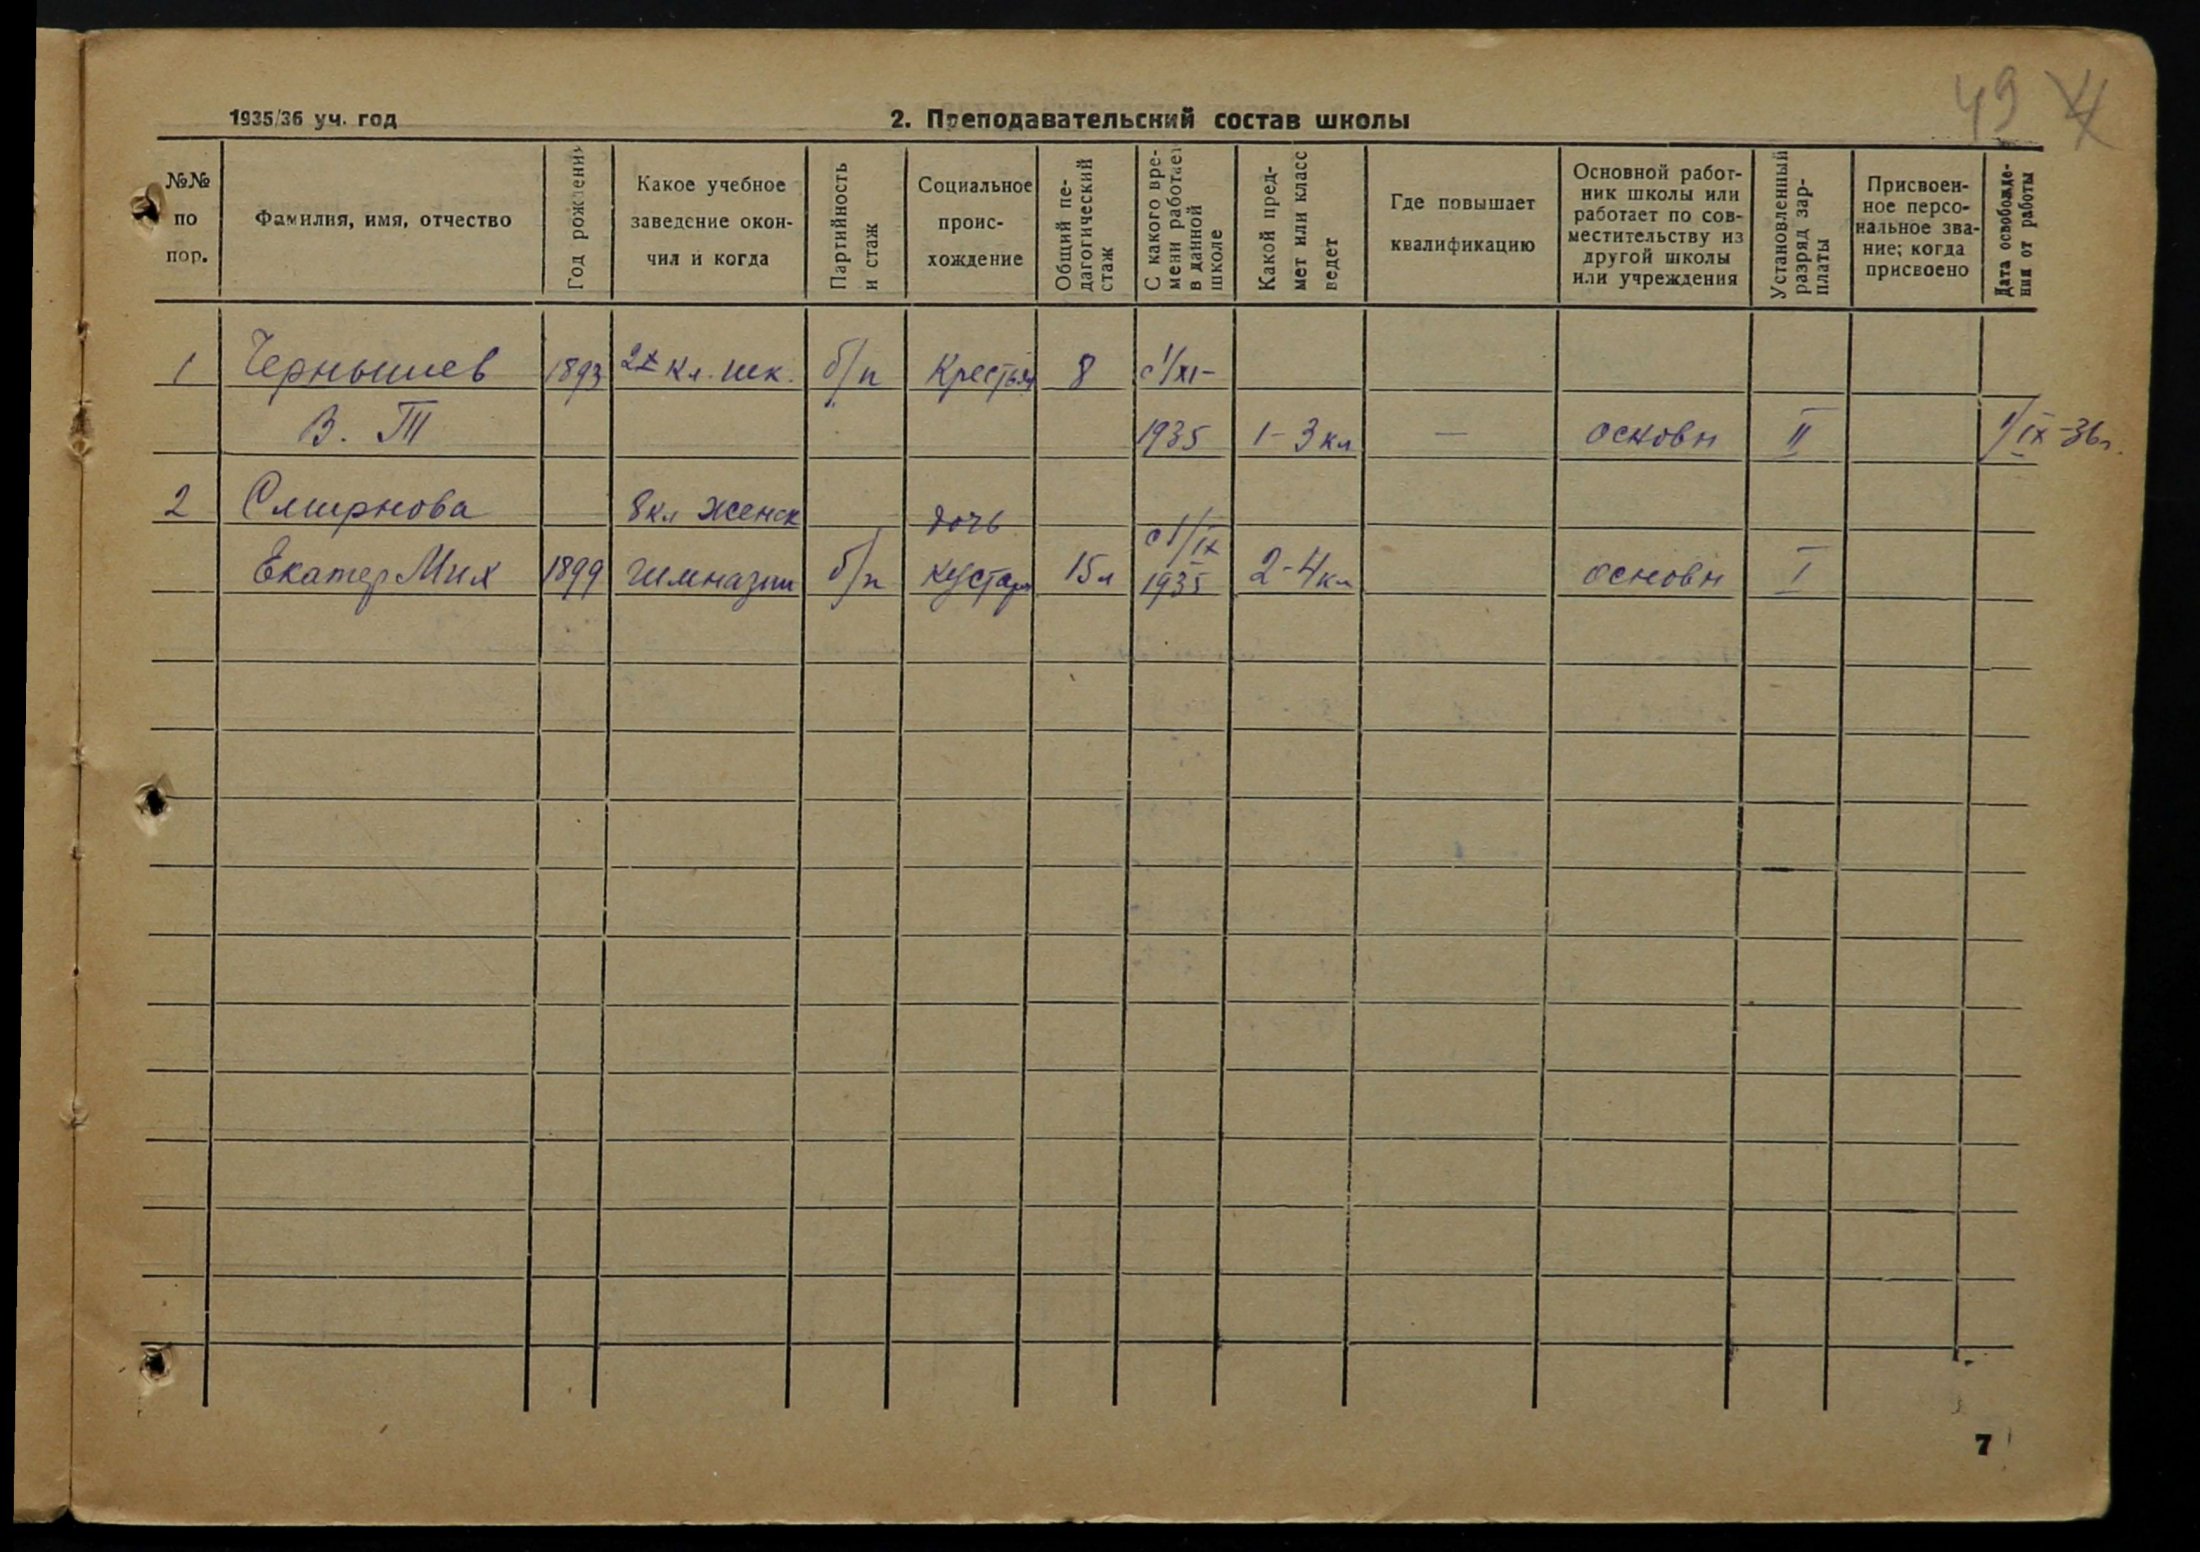 49
1935/36 уч. год
2. Преподавательский состав школы
№№ по пор.
Фамилия, имя, отчество
Год рождения
Какое учебное заведение окончил и когда
Партийность и стаж
Социальное происхождение
Общий педагогический стаж
С какого времени работает в данной школе
Какой предмет или класс ведет
Где повышает квалификацию
Основной работник школы или работает по совместительству из другой школы или учреждения
Установленный разряд зарплаты
Присвоенное персональное звание; когда присвоено
Дата освобождения от работы
1 Чернышев 1893 2х кл. шк. б/п Крестьян 8 с 1/XI-
В. Т 1935 1-3 кл — основн II 1/IX-36г.
2 Смирнова 8 кл женск дочь с 1/IX
Екатер Мих 1899 гимназии б/п кустаря 15 л 1935 2-4 кл основн I
7